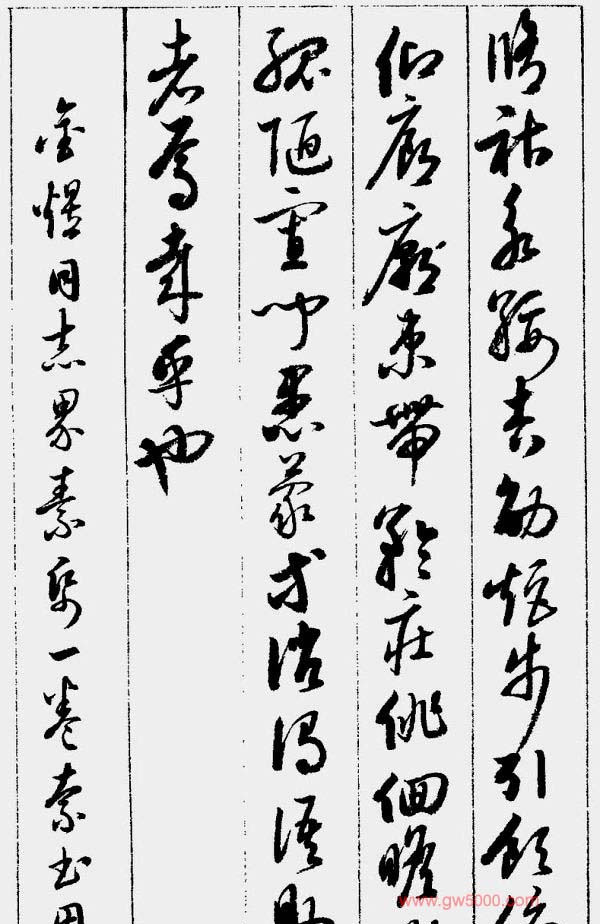 脩祜永綏吉劭矩步引領俯
仰廊廟束帶矜莊俳佪瞻
孤陋寡聞愚蒙等誚謂語助
者焉哉乎也
同志界素帋一卷索书
www.gw5000.com